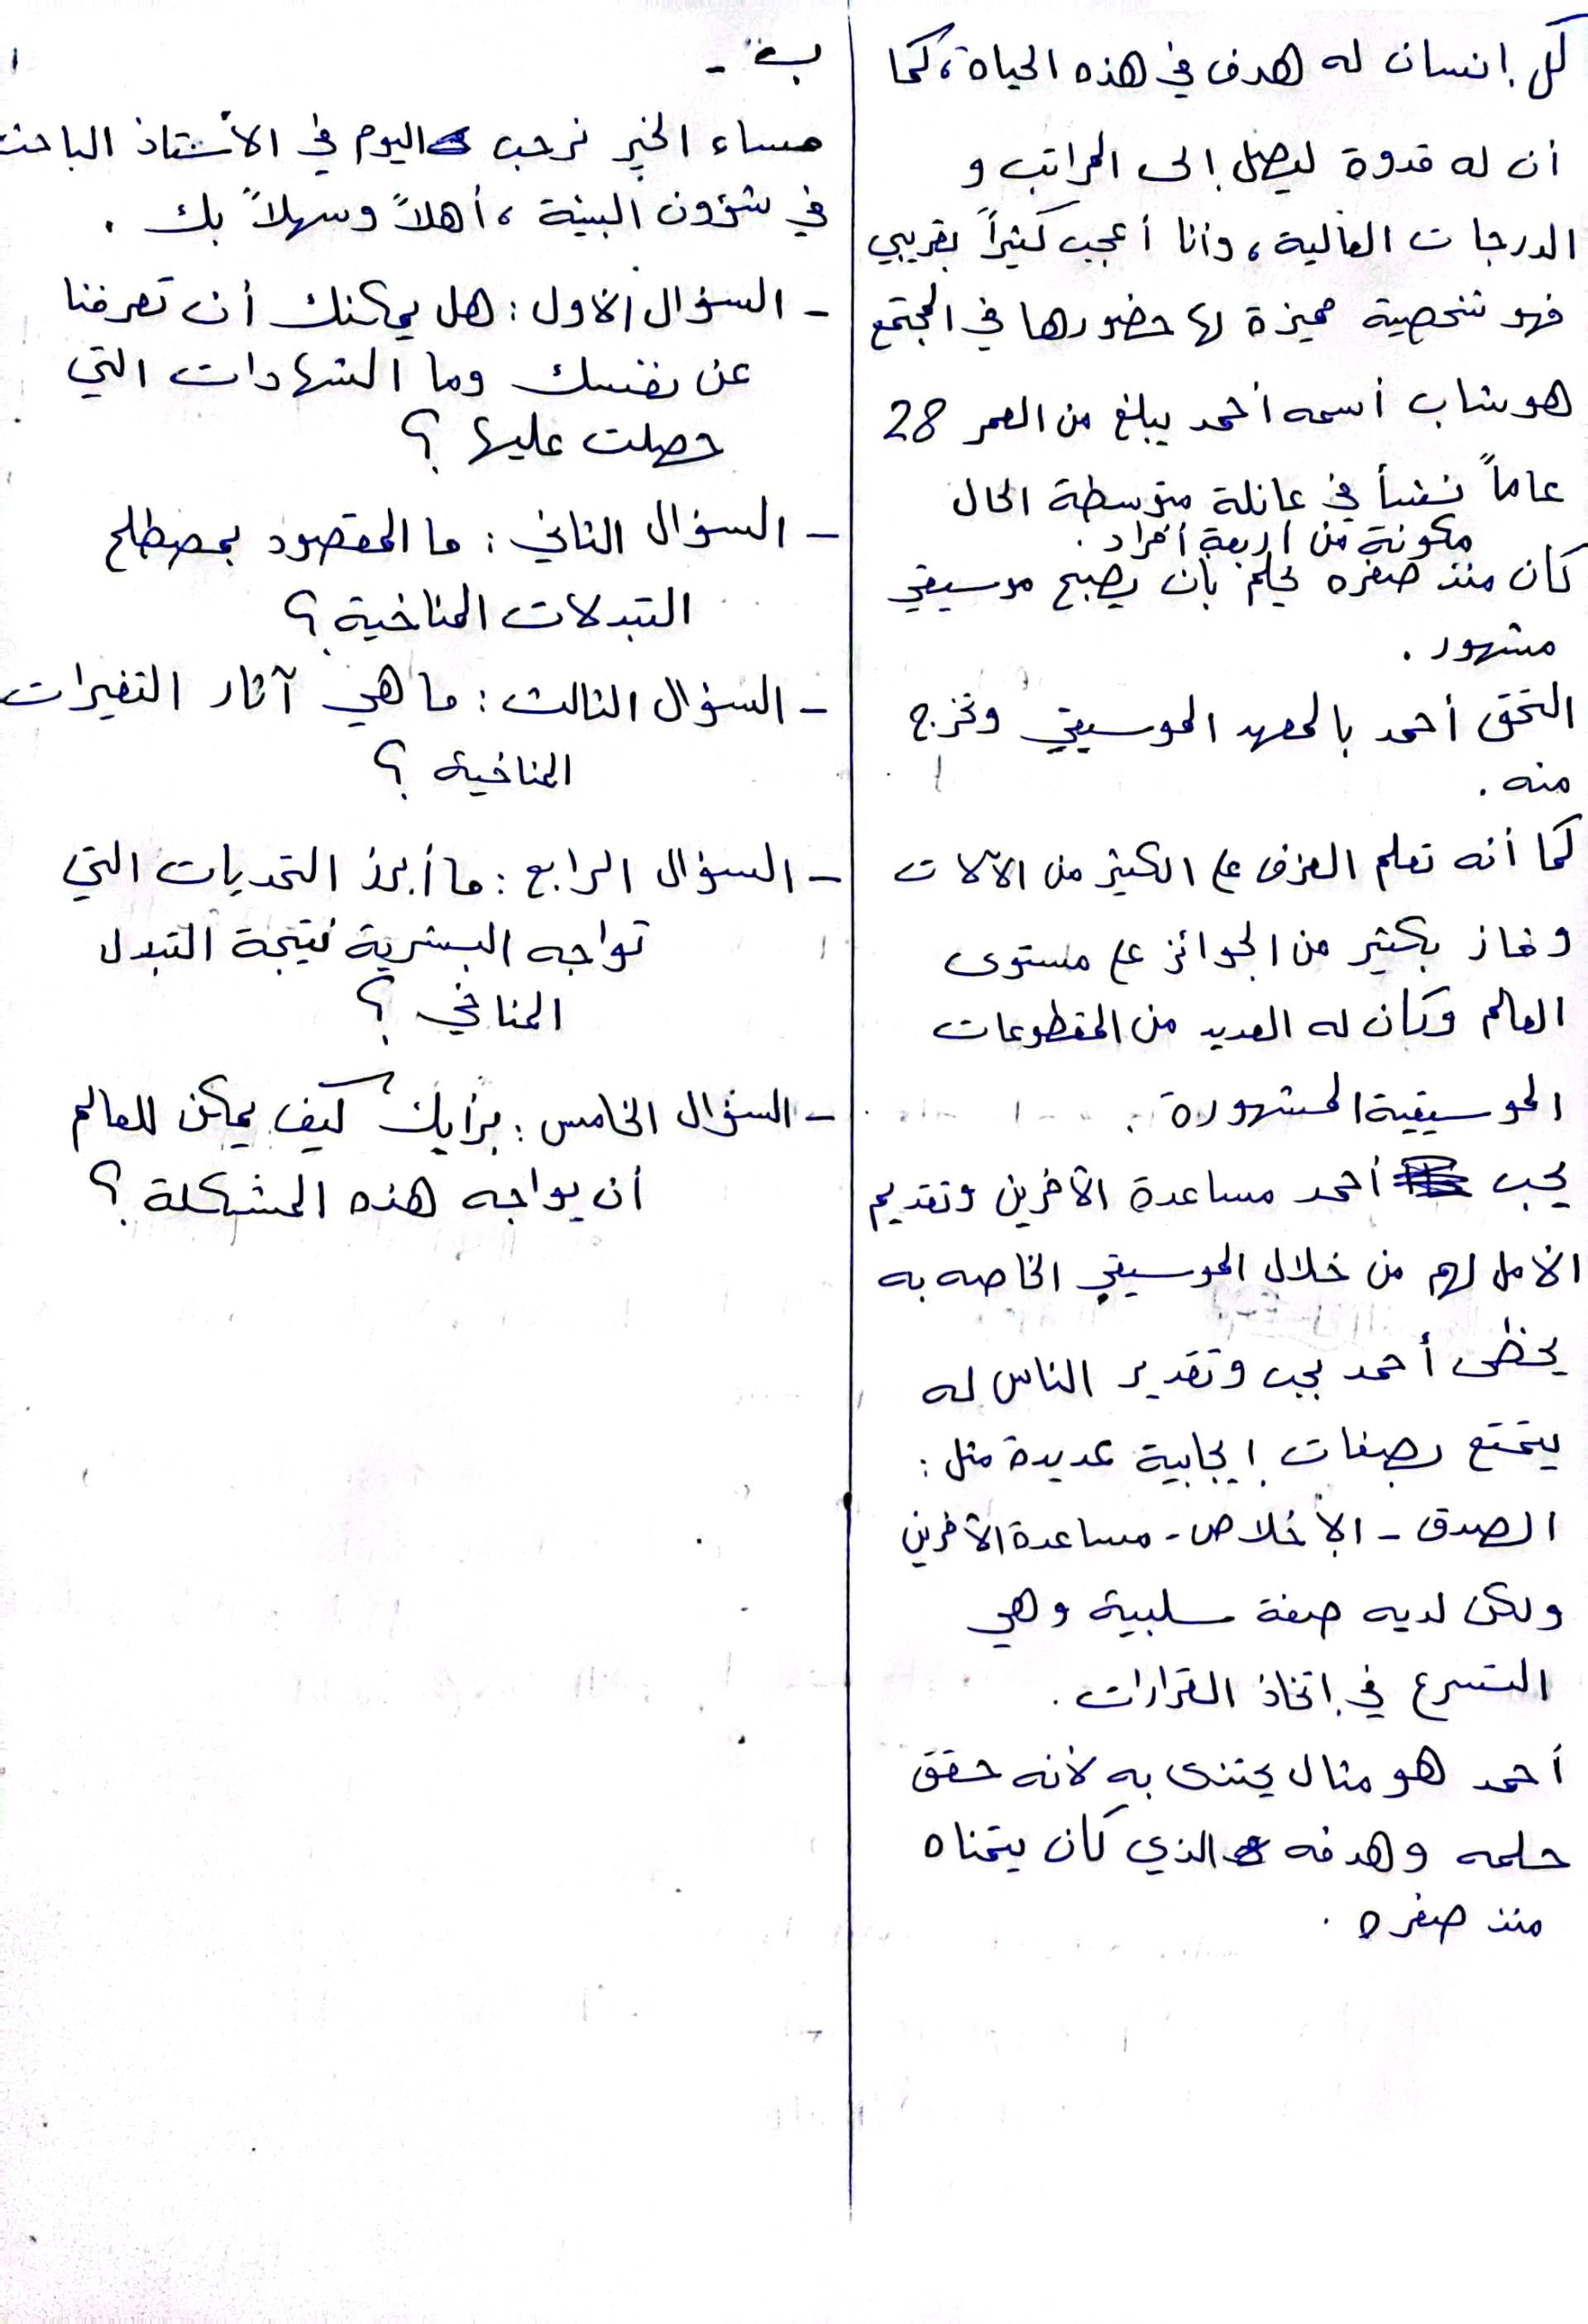 كل إنسان له هدف في هذه الحياة، كما
أن له قدوة ليصل إلى المراتب و
الدرجات العالية، وأنا أعجب كثيراً بقريبي
فهو شخصية مميزة لها حضورها في المجتمع
هو شاب أسمه أحمد يبلغ من العمر 28
عاماً نشأ في عائلة متوسطة الحال
مكونة من أربعة أفراد.
كان منذ صغره يحلم بأن يصبح موسيقي
مشهور.
التحق أحمد بالمعهد الموسيقي وتخرج
منه.
كما أنه تعلم العزف على الكثير من الآلات
وفاز بكثير من الجوائز على مستوى
العالم وكان له العديد من المقطوعات
الموسيقية المشهورة.
يحب أحمد مساعدة الآخرين وتقديم
الأمل لهم من خلال الموسيقى الخاصه به
يحظى أحمد بحب وتقدير الناس له
يتمتع بصفات إيجابية عديدة مثل:
الصدق - الإخلاص - مساعدة الآخرين
ولكن لديه صفة سلبية وهي
التسرع في إتخاذ القرارات.
أحمد هو مثال يحتذى به لأنه حقق
حلمه وهدفه الذي كان يتمناه
منذ صغره.
ب -
مساء الخير نرحب اليوم في الأستاذ الباحث
في شؤون البيئة، أهلاً وسهلاً بك.
- السؤال الأول: هل يمكنك أن تعرفنا
عن نفسك وما الشهادات التي
حصلت عليها؟
- السؤال الثاني: ما المقصود بمصطلح
التبدلات المناخية؟
- السؤال الثالث: ما هي آثار التغيرات
المناخية؟
- السؤال الرابع: ما أبرز التحديات التي
تواجه البشرية نتيجة التبدل
المناخي؟
- السؤال الخامس: برأيك كيف يمكن للعالم
أن يواجه هذه المشكلة؟